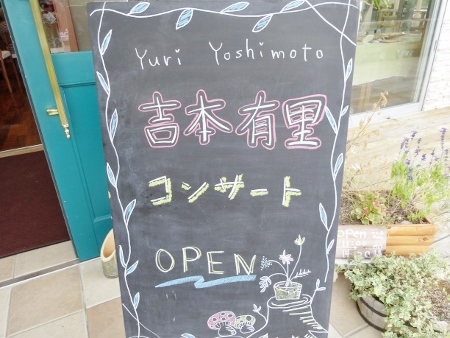 Yuri Yoshimoto
吉本有里
コンサート
OPEN
OPEN